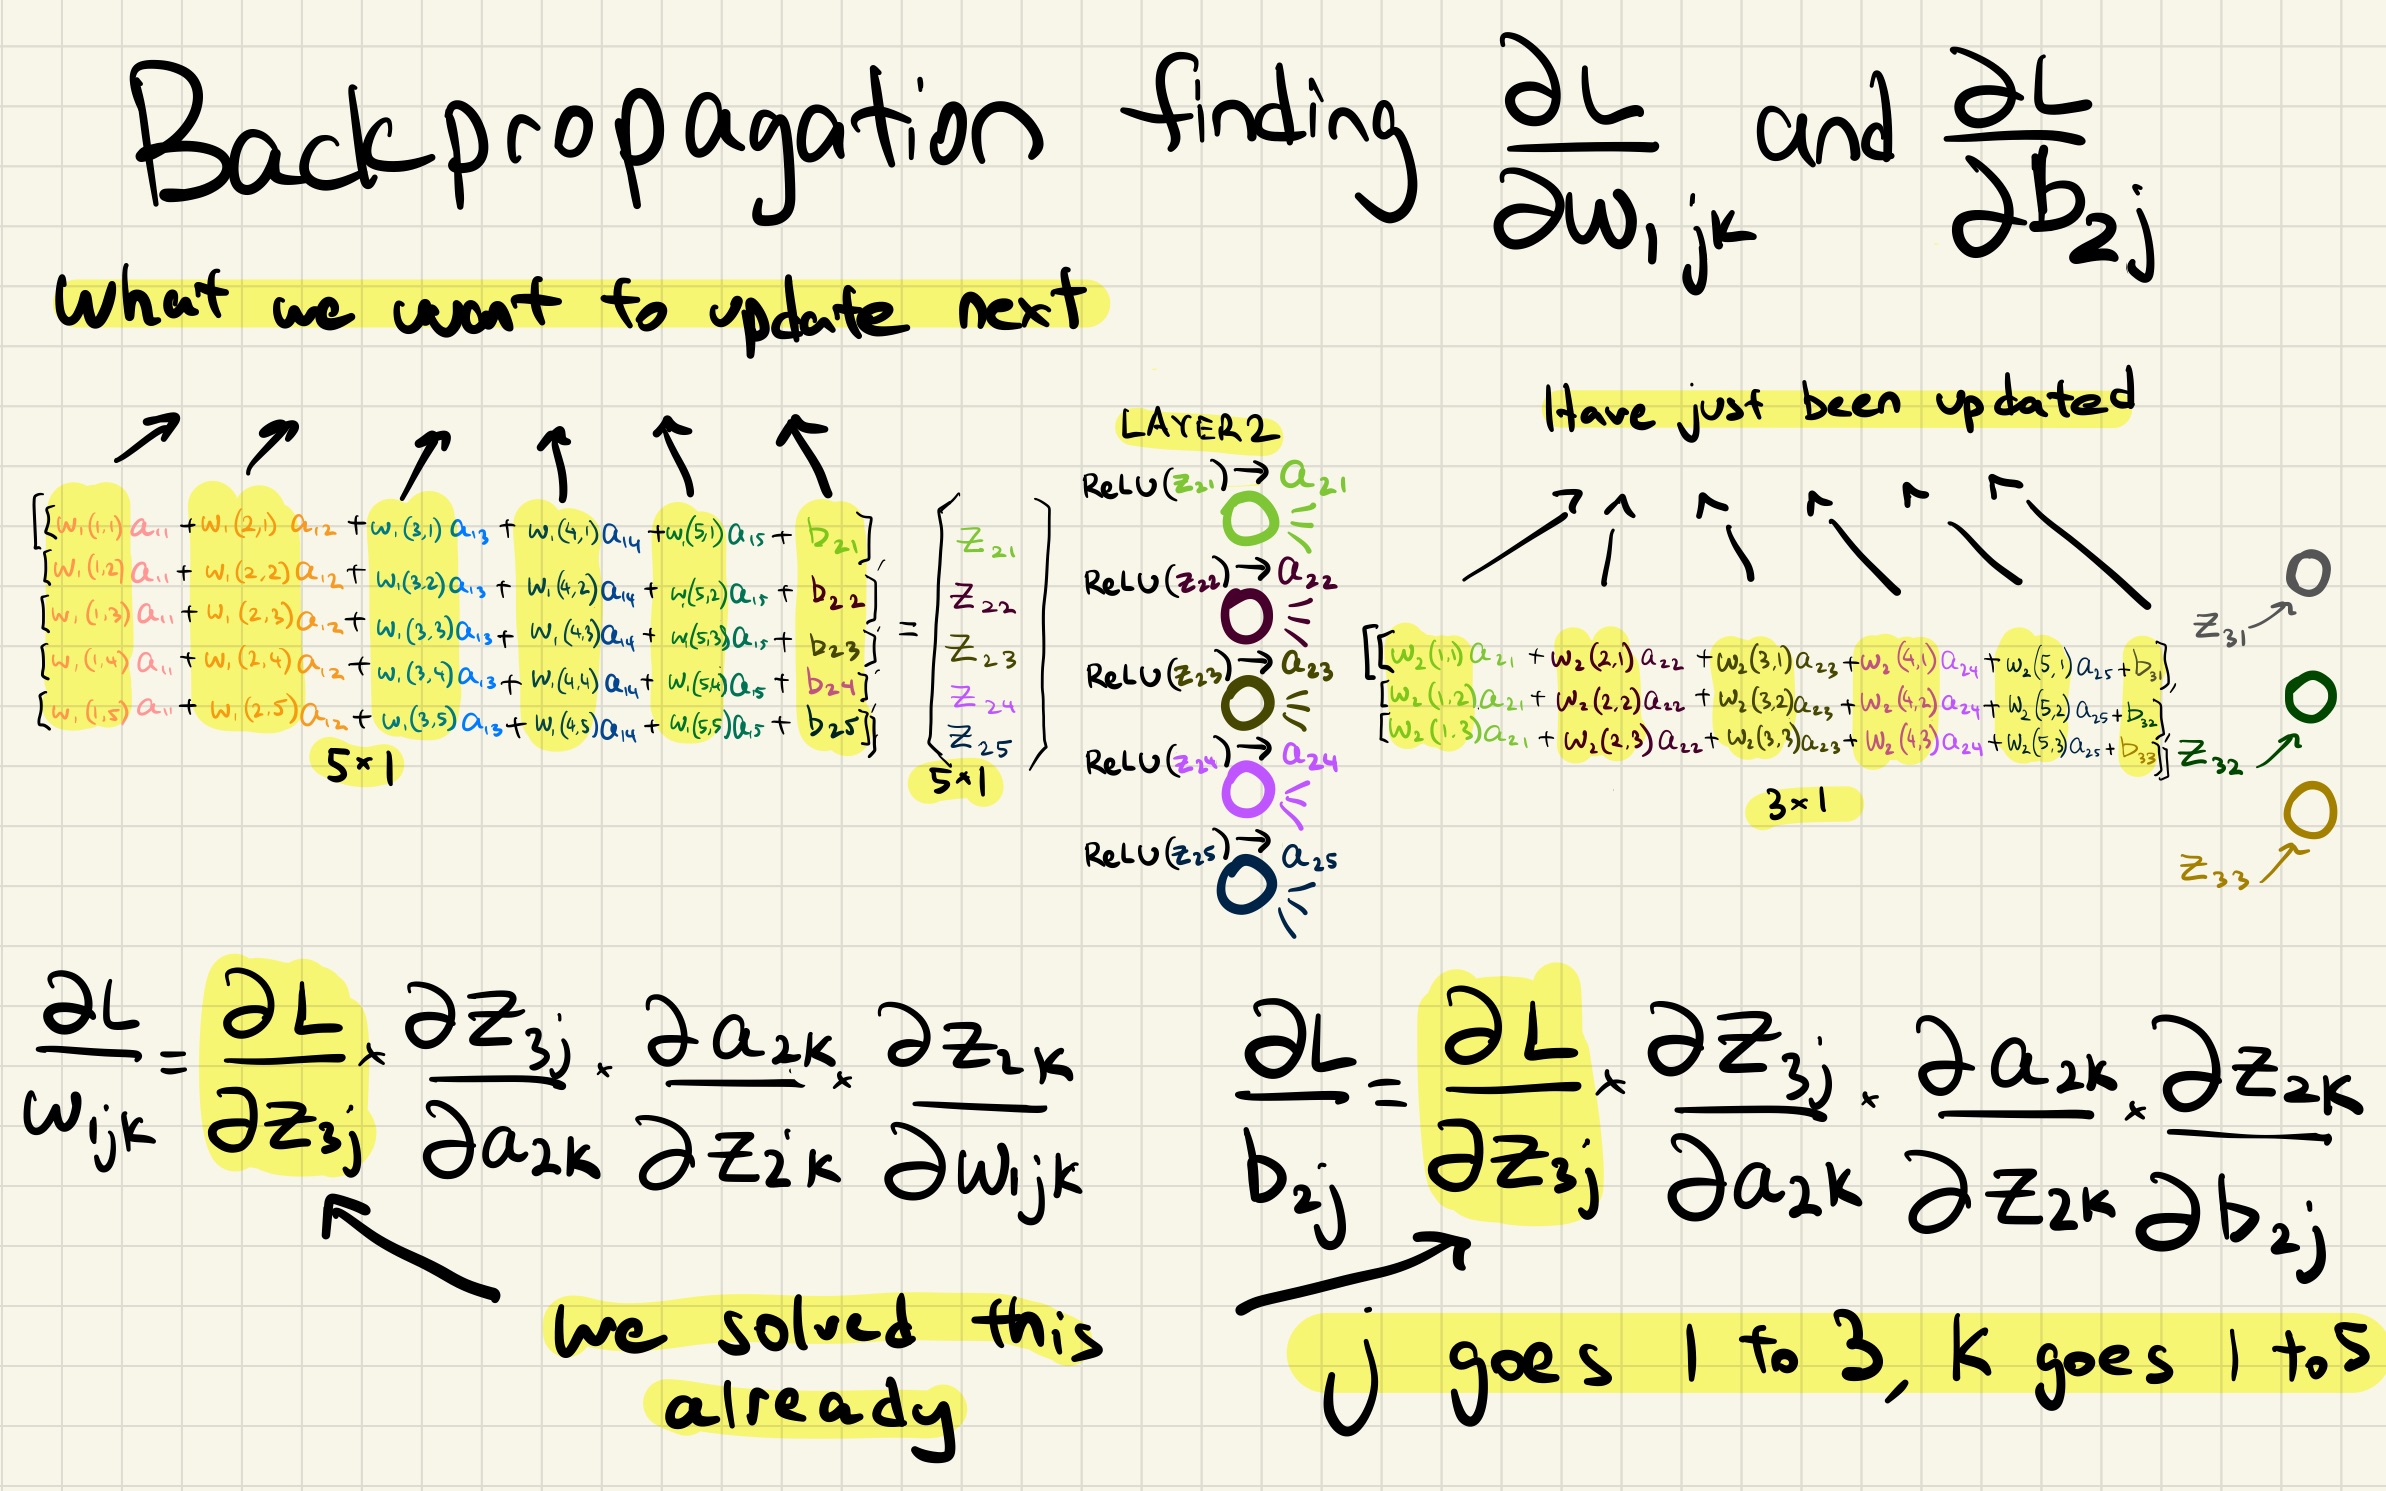 Backpropagation finding ∂L/∂w₁jk and ∂L/∂b₂j
What we want to update next
Have just been updated
LAYER 2
[[w₁(1,1)a₁₁ + w₁(2,1)a₁₂ + w₁(3,1)a₁₃ + w₁(4,1)a₁₄ + w₁(5,1)a₁₅ + b₂₁]
[w₁(1,2)a₁₁ + w₁(2,2)a₁₂ + w₁(3,2)a₁₃ + w₁(4,2)a₁₄ + w₁(5,2)a₁₅ + b₂₂]
[w₁(1,3)a₁₁ + w₁(2,3)a₁₂ + w₁(3,3)a₁₃ + w₁(4,3)a₁₄ + w₁(5,3)a₁₅ + b₂₃]
[w₁(1,4)a₁₁ + w₁(2,4)a₁₂ + w₁(3,4)a₁₃ + w₁(4,4)a₁₄ + w₁(5,4)a₁₅ + b₂₄]
[w₁(1,5)a₁₁ + w₁(2,5)a₁₂ + w₁(3,5)a₁₃ + w₁(4,5)a₁₄ + w₁(5,5)a₁₅ + b₂₅]]
5×1
=
[z₂₁
z₂₂
z₂₃
z₂₄
z₂₅]
5×1
ReLU(z₂₁) → a₂₁
ReLU(z₂₂) → a₂₂
ReLU(z₂₃) → a₂₃
ReLU(z₂₄) → a₂₄
ReLU(z₂₅) → a₂₅
[[w₂(1,1)a₂₁ + w₂(2,1)a₂₂ + w₂(3,1)a₂₃ + w₂(4,1)a₂₄ + w₂(5,1)a₂₅ + b₃₁],
[w₂(1,2)a₂₁ + w₂(2,2)a₂₂ + w₂(3,2)a₂₃ + w₂(4,2)a₂₄ + w₂(5,2)a₂₅ + b₃₂],
[w₂(1,3)a₂₁ + w₂(2,3)a₂₂ + w₂(3,3)a₂₃ + w₂(4,3)a₂₄ + w₂(5,3)a₂₅ + b₃₃]]
3×1
z₃₁
z₃₂
z₃₃
∂L/w₁jk = ∂L/∂z₃j × ∂z₃j/∂a₂k × ∂a₂k/∂z₂k × ∂z₂k/∂w₁jk
∂L/b₂j = ∂L/∂z₃j × ∂z₃j/∂a₂k × ∂a₂k/∂z₂k × ∂z₂k/∂b₂j
we solved this
already
j goes 1 to 3, k goes 1 to 5